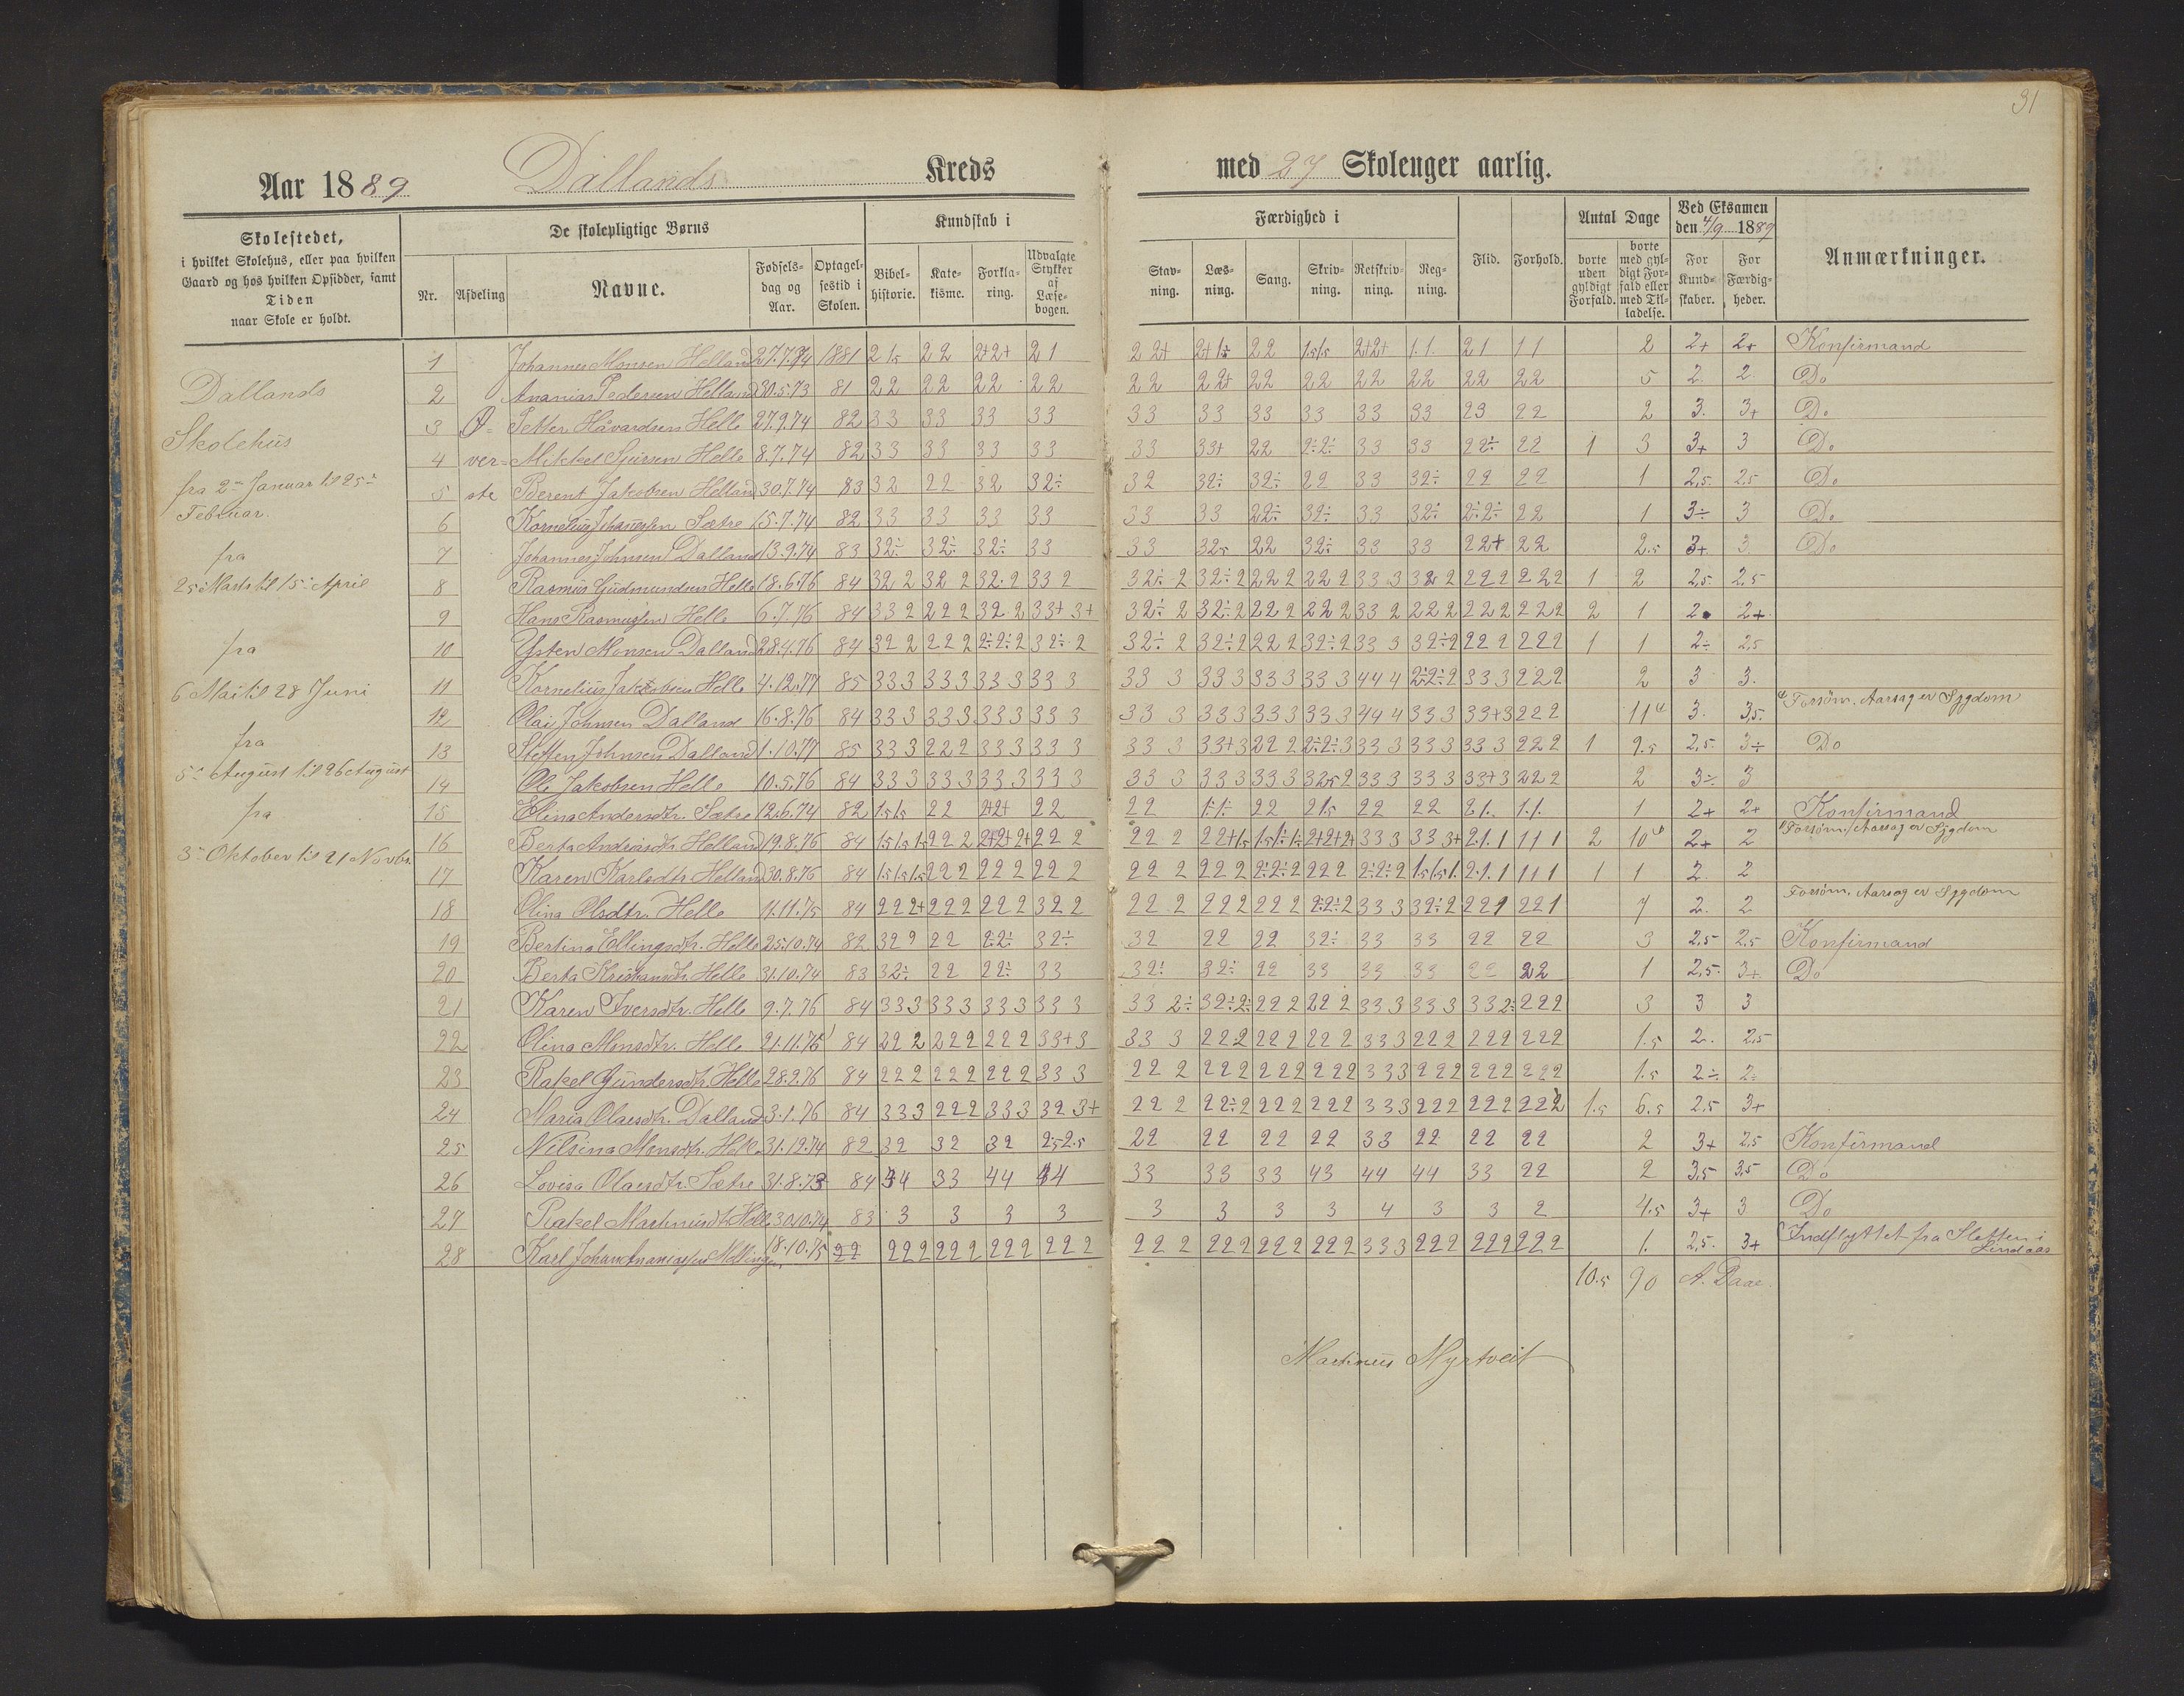 31
Aar 1889 Dallands Kreds med 27 Skolenger aarlig.
Skolestedet,
i hvilket Skolehus, eller paa hvilken
Gaard og hos hvilken Opsidder, samt
Tiden
naar Skole er holdt.
De skolepligtige Børns
Nr.
Afdeling
Navne.
Fødsels-
dag og
Aar.
Optagel-
sestid i
Skolen.
Kundskab i
Bibel-
historie.
Kate-
kisme.
Forkla-
ring.
Udvalgte
Stykker
af
Læse-
bogen.
Færdighed i
Stav-
ning.
Læs-
ning.
Sang.
Skriv-
ning.
Retskriv-
ning.
Reg-
ning.
Flid.
Forhold.
Antal Dage
borte
uden
gyldigt
Forfald.
borte
med gyl-
digt For-
fald eller
med Til-
ladelse.
Ved Eksamen
den 4/9 1889
For
Kund-
skaber.
For
Færdig-
heder.
Anmærkninger.
Dallands
Skolehus
fra 2den Januar til 25de
Februar.
fra
25 Marts til 15de April
fra
6 Mai til 28 Juni
fra
5te August til 26 August
fra
3die Oktober til 21 Novbr.
Ø-
ver-
ste
1 Johannes Monsen Helland 27.7.74 1881 2 1.5 2 2 2+2+ 2 1 2 2+ 2+ 1.5 2 2 1.5 1.5 2+2+ 1.1 2 1 1 1 2 2+ 2+ Konfirmand
2 Ananias Pedersen Helland 30.5.73 81 22 22 22 22 22 22+ 22 22 22 22 22 22 5 2. 2. Do
3 Petter Håvardsen Helle 27.9.74 82 33 33 33 33 33 33 33 33 33 33 23 22 2 3. 3+ Do
4 Mikkel Sjursen Helle 8.7.74 82 33 33 33 33 33 33+ 22 2÷2÷ 33 33 22÷ 22 1 3 3+ 3 Do
5 Berent Jakobsen Helland 30.7.74 83 32 22 32 32÷ 32 32÷ 32÷ 22 33 32÷ 22 22 1 2,5. 2,5 Do
6 Kornelius Johannessen Sætre 15.7.74 82 33 33 33 33 33 33 22÷ 32÷ 33 32÷ 2÷2÷ 22 1 3÷ 3 Do
7 Johannes Johnsen Dalland 13.9.74 83 32÷ 32÷ 32÷ 33 33 32.5 22 32÷ 33 33 22+ 22 2.5 3+ 3 Do
8 Rasmus Gudmundsen Helle 18.6.76 84 32 2 32 2 32 2 33 2 32.5 2 32÷2 222 222 333 32 2 222 222 1 2 2,5. 2,5
9 Hans Rasmussen Helle 6.7.76 84 33 2 222 32 2 33+ 3+ 32÷ 2 32÷2 222 222 33 2 222 222 222 2 1 2. 2+
10 Østen Monsen Dalland 28.4.76 84 32 2 222 2÷2÷2 32÷ 2 32÷ 2 32÷2 222 32÷2 33 3 32÷2 222 222 1 1 2÷ 2,5
11 Kornelius Jakobsen Helle 4.12.77 85 333 333 333 333 33 3 333 333 333 444 2÷2÷2 333 222 2 3 3.
12 Olai Johnsen Dalland 16.8.76 84 333 333 333 333 33 3 333 333 333 444 333 33+3 222 11 3. 3,5. Forsøm. Aarsag er Sygdom
13 Steffen Johnsen Dalland 1.10.77 85 333 222 333 333 33 3 33+3 222 2÷2÷3 333 333 333 222 1 2.5 2,5. 3÷ Do
14 Ole Jakobsen Helle 10.5.76 84 333 333 333 333 33 3 333 333 32.52 333 333 33+3 222 2 3÷ 3
15 Elina Andersdtr. Sætre 12.6.74 82 1.5 1.5 22 2+2+ 22 22 1÷1÷ 22 2 1.5 22 22 2.1. 1.1. 1 2+ 2+ Konfirmand
16 Berta Andreasdtr Helland 19.8.76 84 1.5 1.5 1.5 222 2+2+2+ 22 2 22 2 22+1.5 1.5 1÷ 1÷ 2+2+2+ 333 33 3+ 2.1.1 111 2 10 2+ 2 Forsøm. Aarsag er Sygdom
17 Karen Karlsdtr Helland 30.8.76 84 1.5 1.5 1.5 222 222 222 22 2 222 2÷2÷2 222 2÷2÷2 1.5 1.5 1. 2.1.1 111 1 1 2. 2
18 Olina Olsdtr. Helle 11.11.75 84 222+ 222 222 322 22 2 222 222 2÷2÷2 333 32÷2 221 221 7 2. 2 Forsøm. Aarsag er Sygdom
19 Bertina Ellingsdtr. Helle 25.10.74 82 32 22 22÷ 32÷ 32 22 22 32÷ 33 33 22 22 3 2,5 2,5 Konfirmand
20 Berta Kristiansdtr Helle 31.10.74 83 32÷ 22 22÷ 33 32÷ 32÷ 22 33 33 33 22 22 1 2,5. 3+ Do
21 Karen Iversdtr. Helle 9.7.76 84 333 333 333 333 33 2÷ 32÷2÷ 222 222 333 333 332÷ 222 3 3 3
22 Olina Monsdtr. Helle 21.11.76 84 222 222 222 33+3 33 3 22÷2 222 222 333 222 222 222 1.5 2. 2,5
23 Rakel Gundersdtr. Helle 28.9.76 84 222 222 222 333 22 2 222 222 222 333 222 222 222 1.5 2÷ 2÷
24 Maria Olaesdtr. Dalland 3.1.76 84 333 222 333 32 3+ 22 2 22÷2 222 222 333 222 222 222 1.5 6.5 2,5 3+
25 Nilsina Monsdtr. Helle 31.12.74 82 32 32 32 2.5 2.5 22 22 22 22 33 22 22 22 2 3+ 2,5 Konfirmand
26 Lovisa Olaesdtr Sætre 31.8.73 84 34 33 44 44 33 33 33 43 44 44 33 22 2 3,5 3,5 Do
27 Rakel Martinusdtr Helle 30.10.74 83 3 3 3 3 3 3 3 3 4 3 3 2 4.5 3+ 3 Do
28 Karl Johan Ananiassen 18.10.75 22 222 222 222 222 22 2 222 222 222 333 222 222 222 1. 2,5. 3+ Indflyttet fra Sletten i
Lindaas
10.5 90 A. Daae.
Martinus Myrtveit